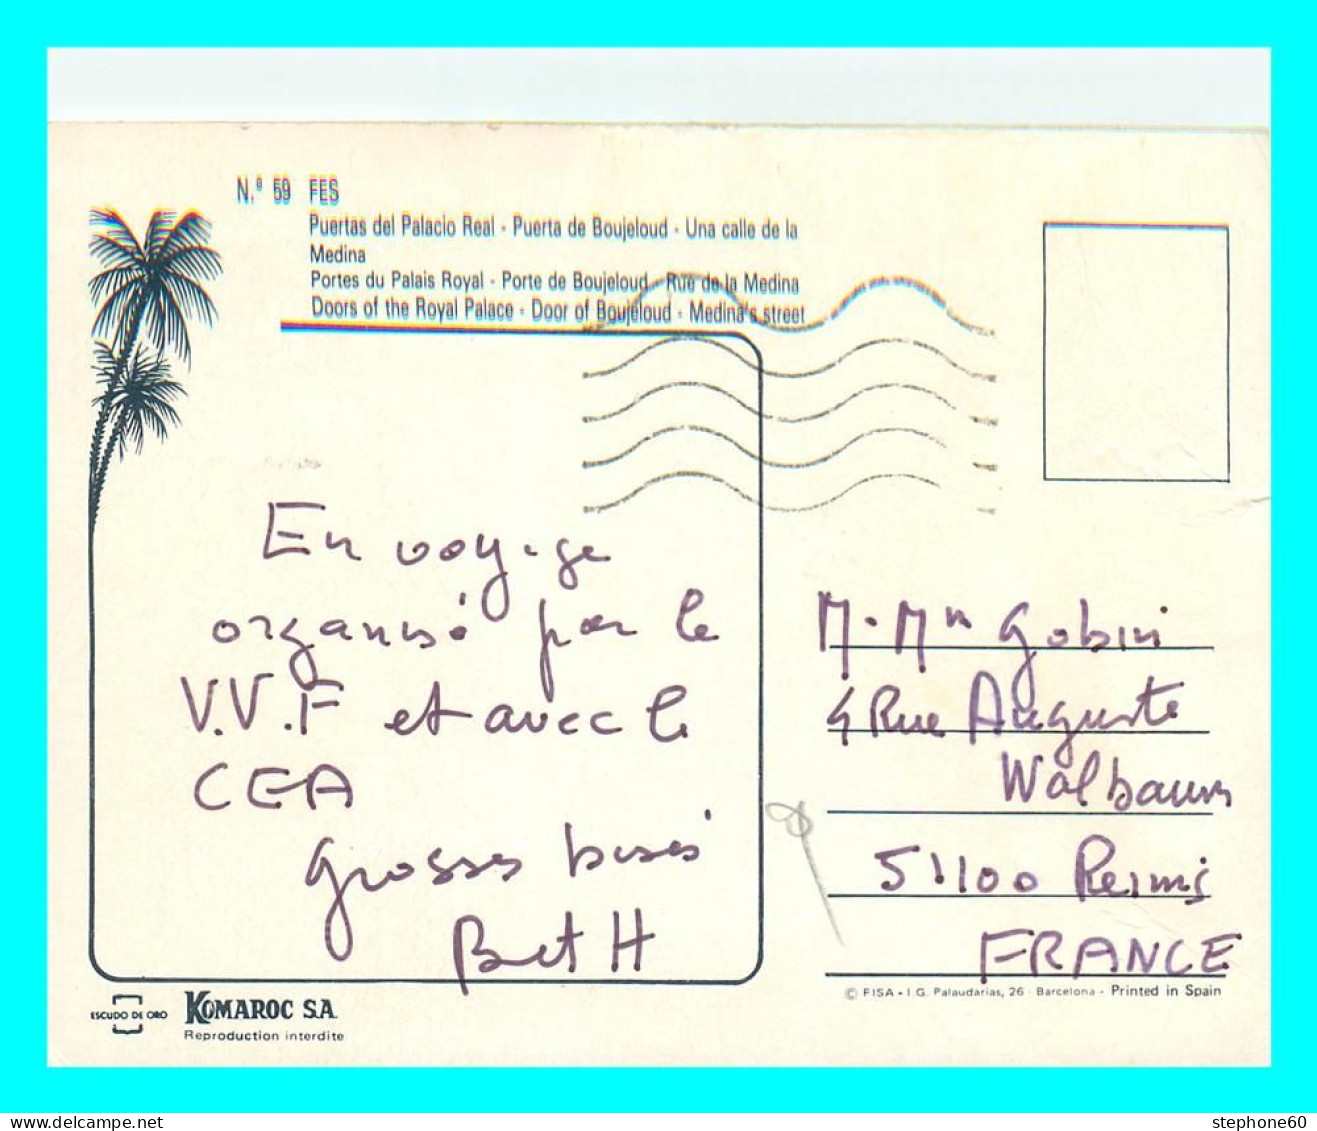 N.º 59 FES
Puertas del Palacio Real - Puerta de Boujeloud - Una calle de la
Medina
Portes du Palais Royal - Porte de Boujeloud - Rue de la Medina
Doors of the Royal Palace - Door of Boujeloud - Medina's street
En voyage
organisé par le
V.V.F et avec le
CEA
grosses bises
B et H
M. Mm Gobin
4 Rue Auguste
Walbaum
51100 Reims
FRANCE
ESCUDO DE ORO
KOMAROC S.A.
Reproduction interdite
© FISA - I.G. Palaudarias, 26 - Barcelona - Printed in Spain
www.delcampe.net
stephone60